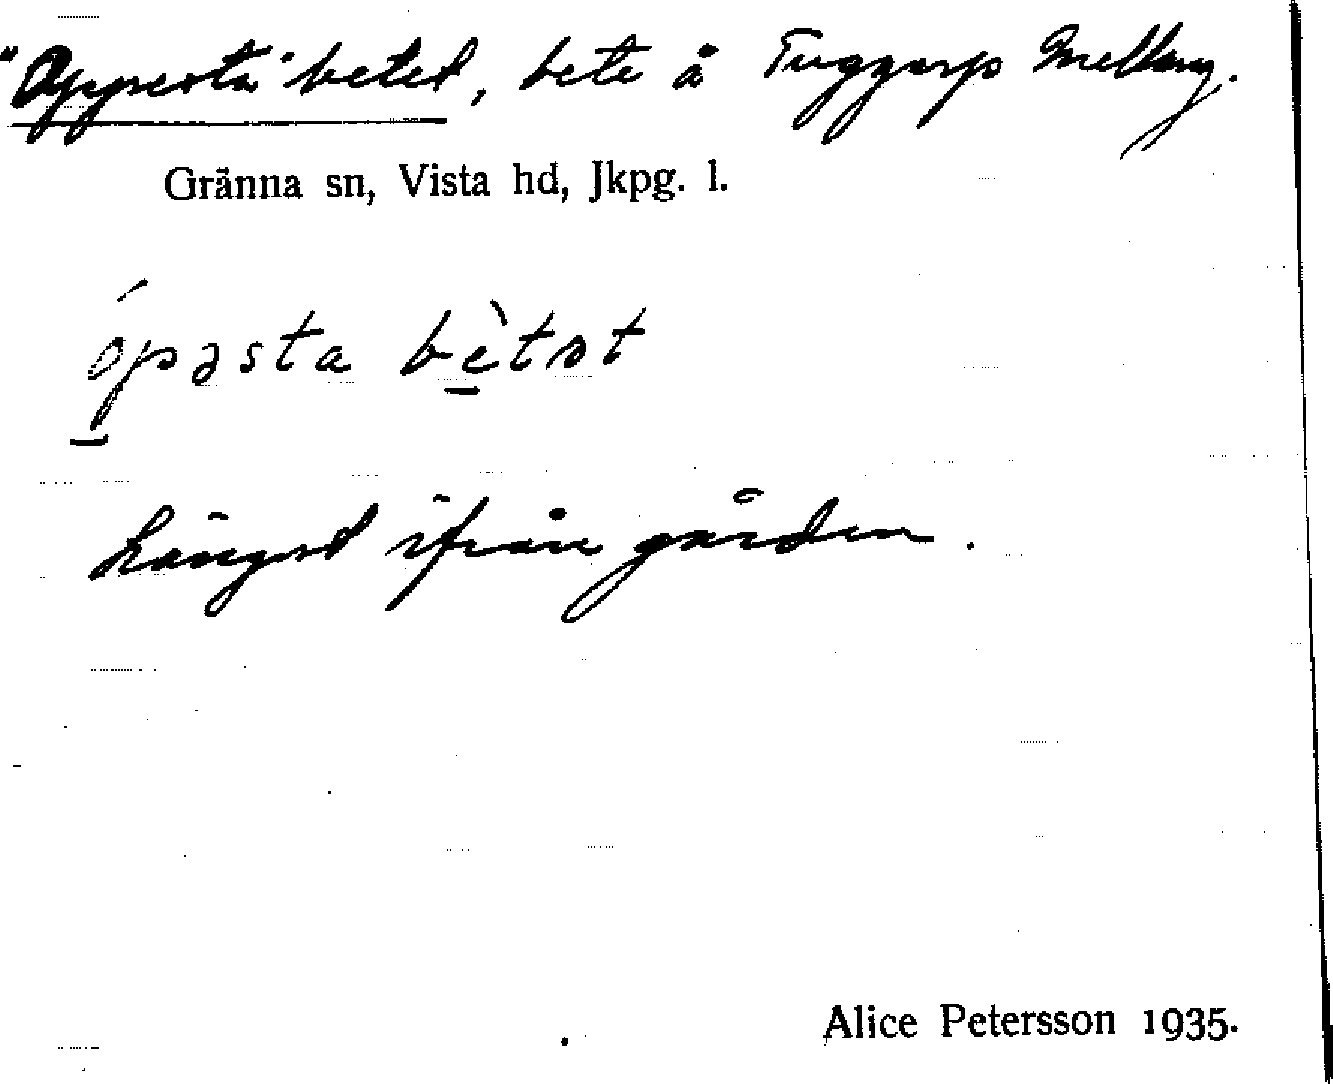 "Oppresta" betet, bete å Tuggarp Mellang.
Gränna sn, Vista hd, Jkpg. l.
ópəsta bètət
Längst ifrån gården.
Alice Petersson 1935.